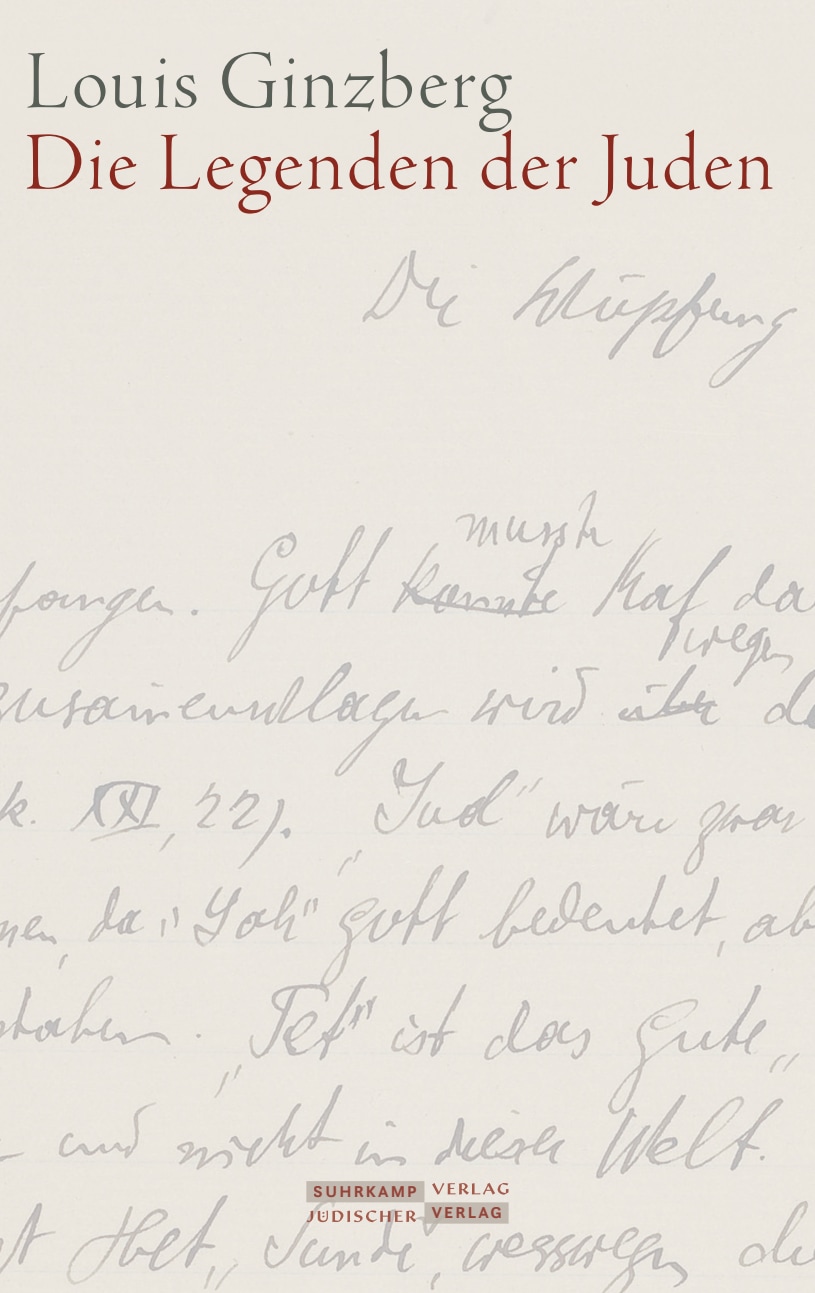 Louis Ginzberg
Die Legenden der Juden
Die Schöpfung
musste
fangen. Gott konnte Kaf da
wegen
zusammenschlagen wird über de
k. XXI, 22). „Jud" wäre zwar
nen, da „Yah" Gott bedeutet, ab
staben. „Tet" ist das Gute „
und nicht in dieser Welt.
SUHRKAMP VERLAG
JÜDISCHER VERLAG
Het „Sünde", wesswegen die